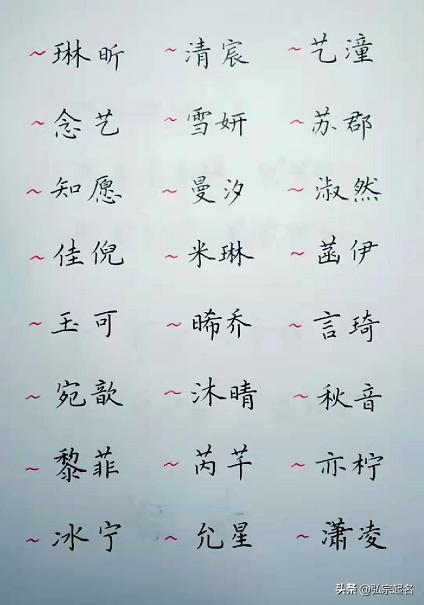 ~琳昕 ~清宸 ~艺潼
~念艺 ~雪妍 ~苏郡
~知愿 ~曼汐 ~淑然
~佳倪 ~米琳 ~菡伊
~玉可 ~晞乔 ~言琦
~宛歆 ~沐晴 ~秋音
~黎菲 ~芮芊 ~亦柠
~冰宁 ~允星 ~潇凌
头条 @弘宗起名